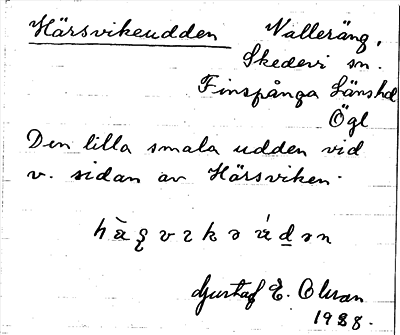 Härsvikeudden Valleräng,
Skedevi sn.
Finspånga Länshd
Ögl
Den lilla smala udden vid
v. sidan av Härsviken.
Gustaf E. Olsson
1928.